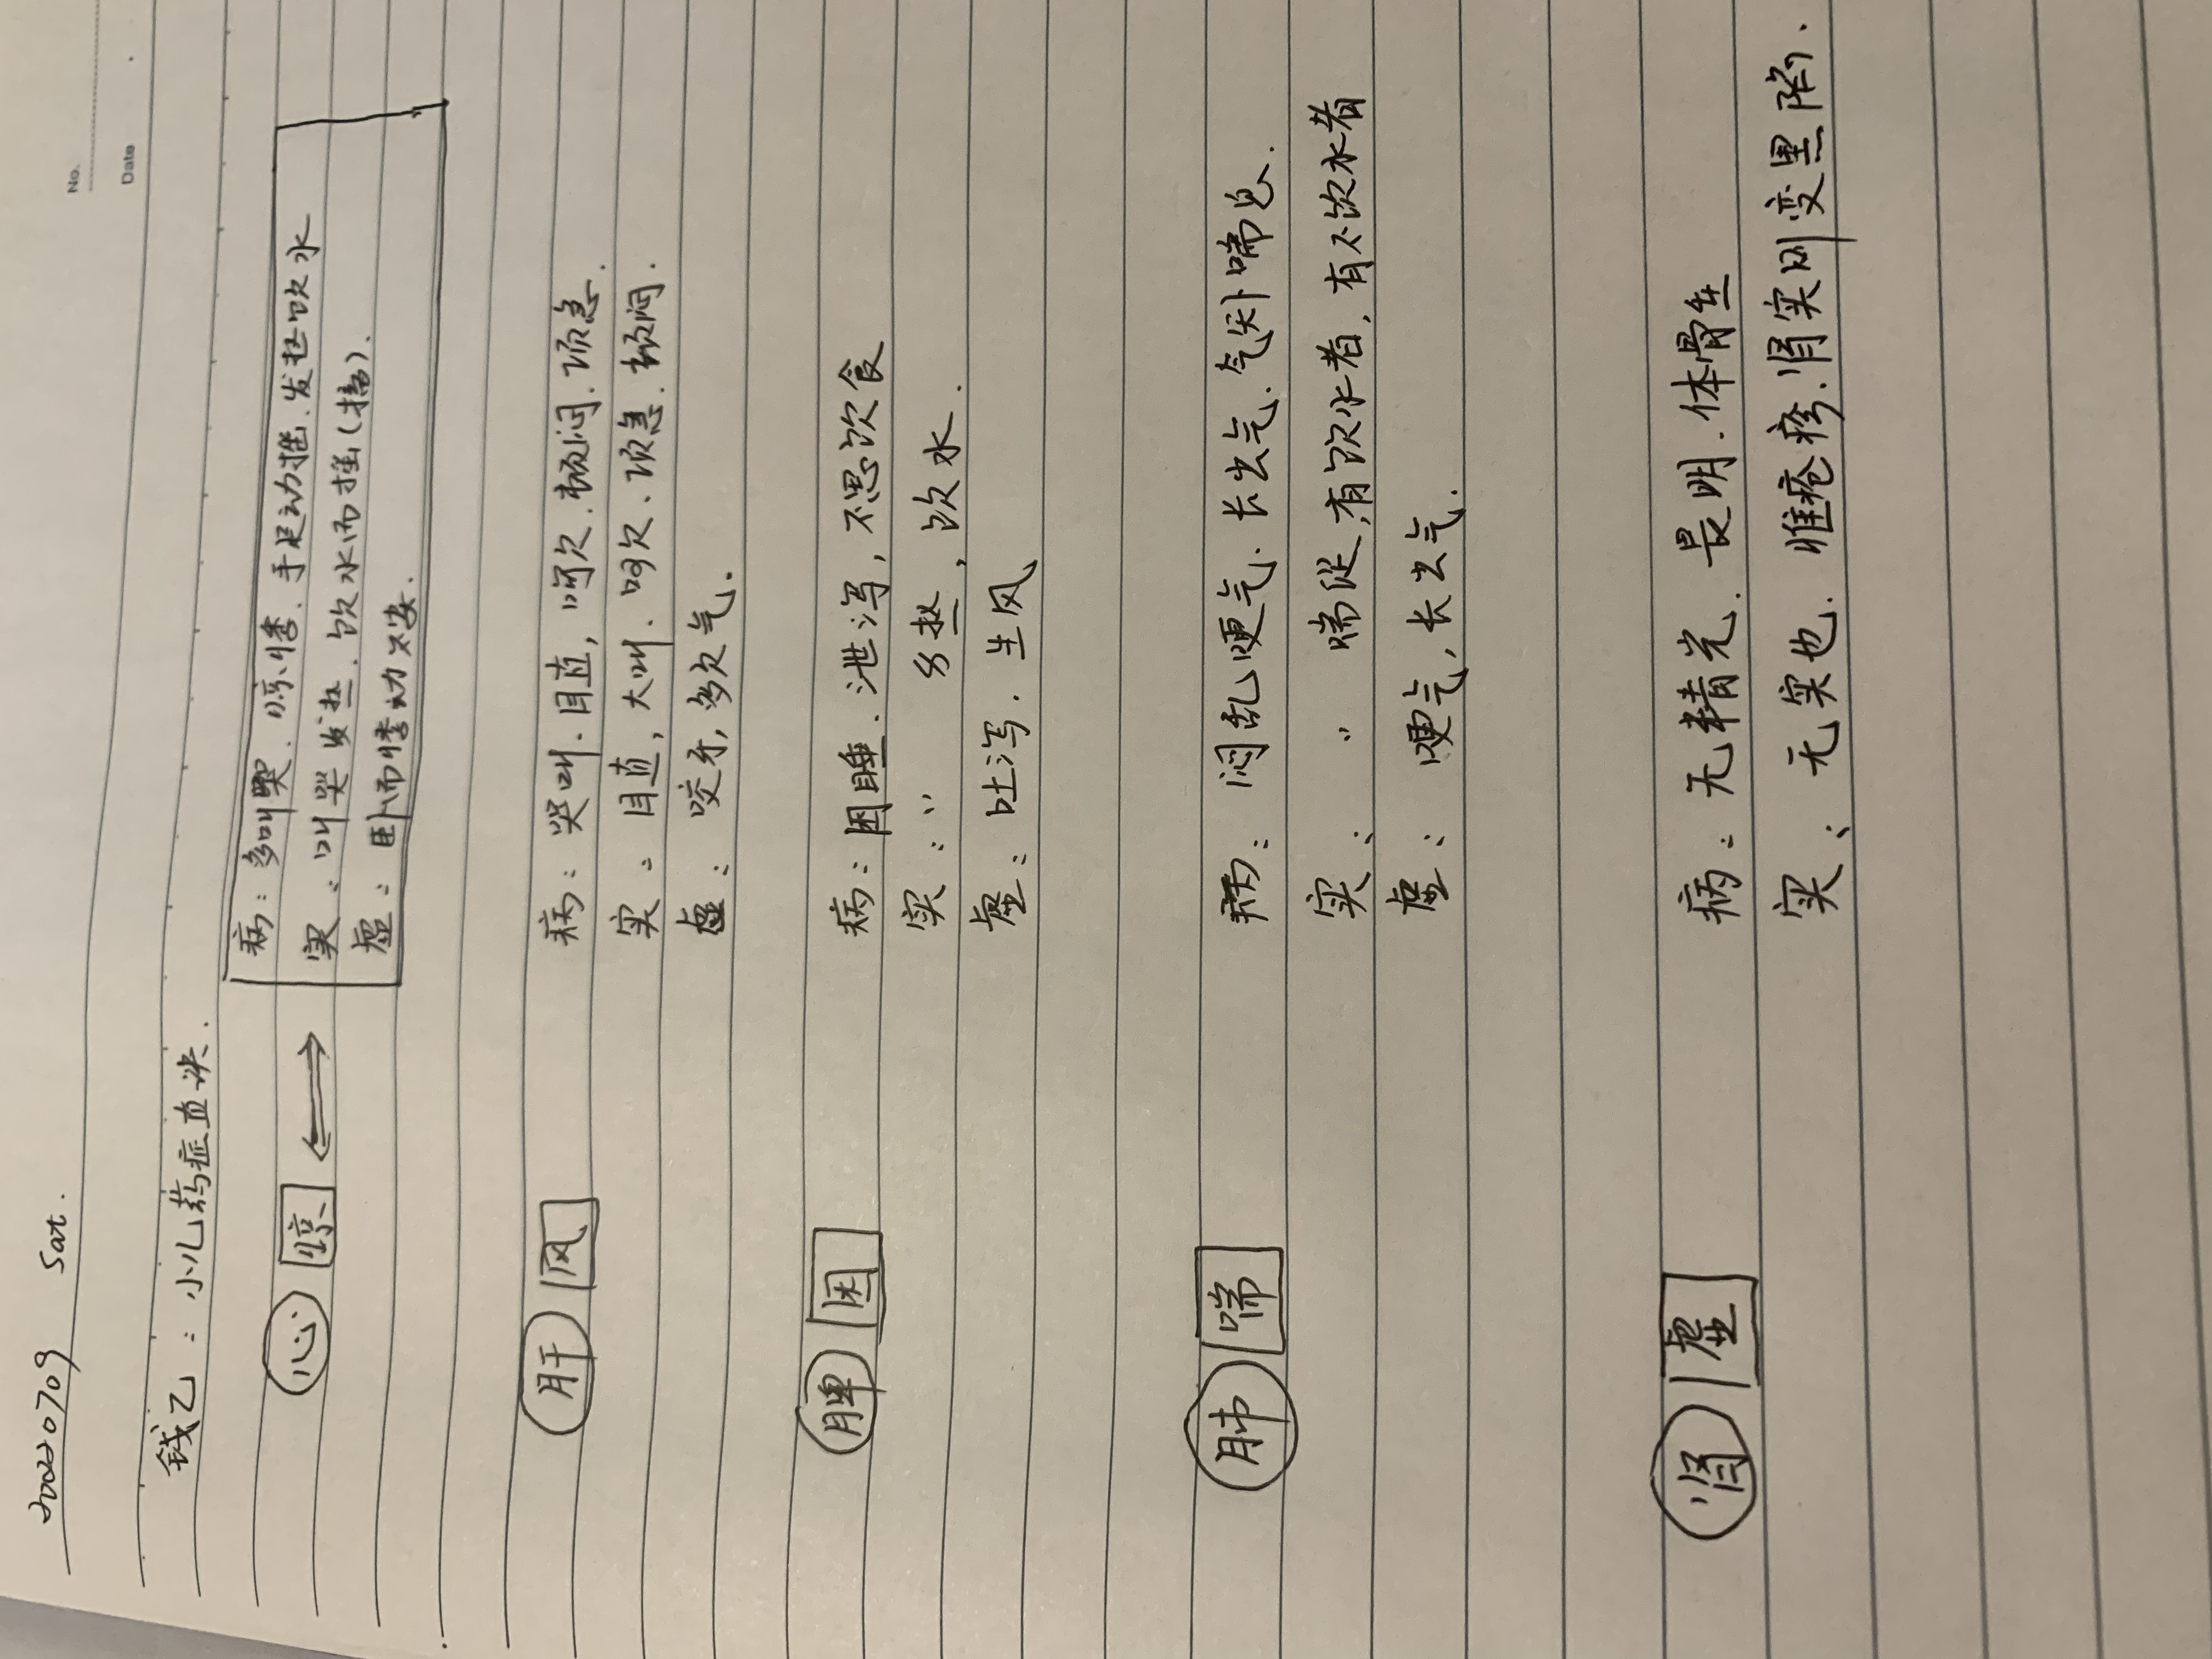 No.
Date
20220709 Sat.
钱乙：小儿药症直诀.
心 惊 ⟺ 病：多叫哭.惊悸.手足动摇.发热饮水
实：叫哭发热.饮水而摇(搐).
虚：卧而悸动不安.
肝 风 病：哭叫.目直,呵欠.顿闷.项急.
实：目直,大叫.呵欠.项急.顿闷.
虚：咬牙,多欠气.
脾 困 病：困睡.泄泻,不思饮食
实：〃 身热,饮水.
虚：吐泻.生风
肺 喘 病：闷乱哽气.长出气.气短喘息.
实：〃 喘促,有饮水者,有不饮水者
虚：哽气,长出气.
肾 虚 病：无精光.畏明.体骨重
实：无实也.惟疮疹.肾实则变黑陷.